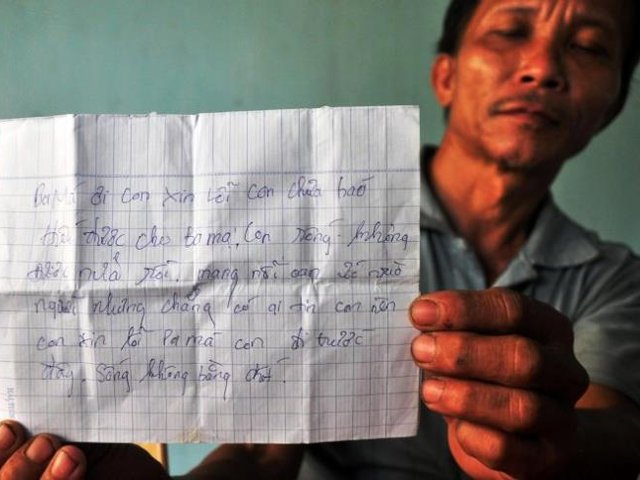 Ba Má ơi con xin lỗi con chưa báo
hiếu được cho ba má. Con sống không
được nữa rồi. mang nỗi oan ức
người nhưng chẳng có ai tin con nên
con xin lỗi ba má con đi trước
đây. Sống không bằng chết.